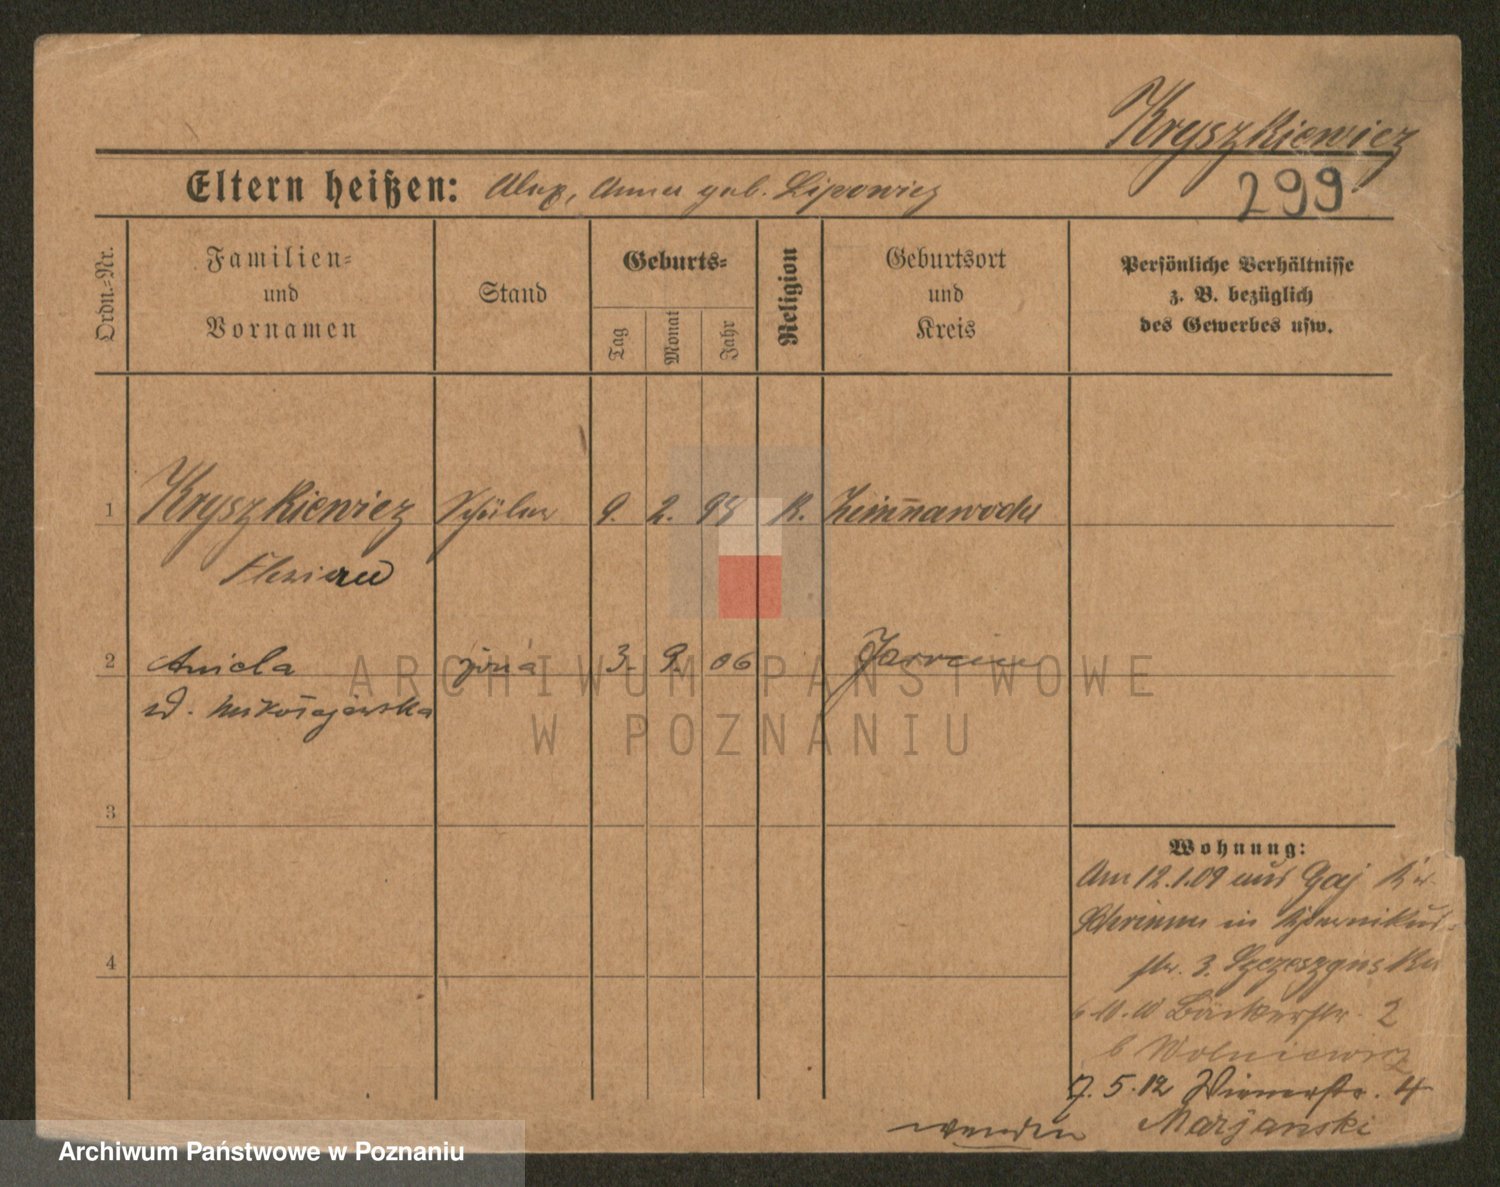 Kryszkiewicz
Eltern heißen: Alex, Anna geb. Lipowicz
299
Ordn.-Nr.
Familien-
und
Vornamen
Stand
Geburts-
Tag
Monat
Jahr
Religion
Geburtsort
und
Kreis
Persönliche Verhältnisse
z. B. bezüglich
des Gewerbes usw.
1 Kryszkiewicz Schüler 9. 2. 98 K. Zeimnawoda
Florian
2 Aniela żona 3. 9. 06
d. Mikołajewska
3
4
Wohnung:
Am 12.1.09 aus Gaj Kr.
Schrimm in
str. 3.
Bäckerstr. 2
b Wolniewicz
7. 5. 12 Wienerstr. 4
Marjanski
wenden
ARCHIWUM PAŃSTWOWE
W POZNANIU
Archiwum Państwowe w Poznaniu